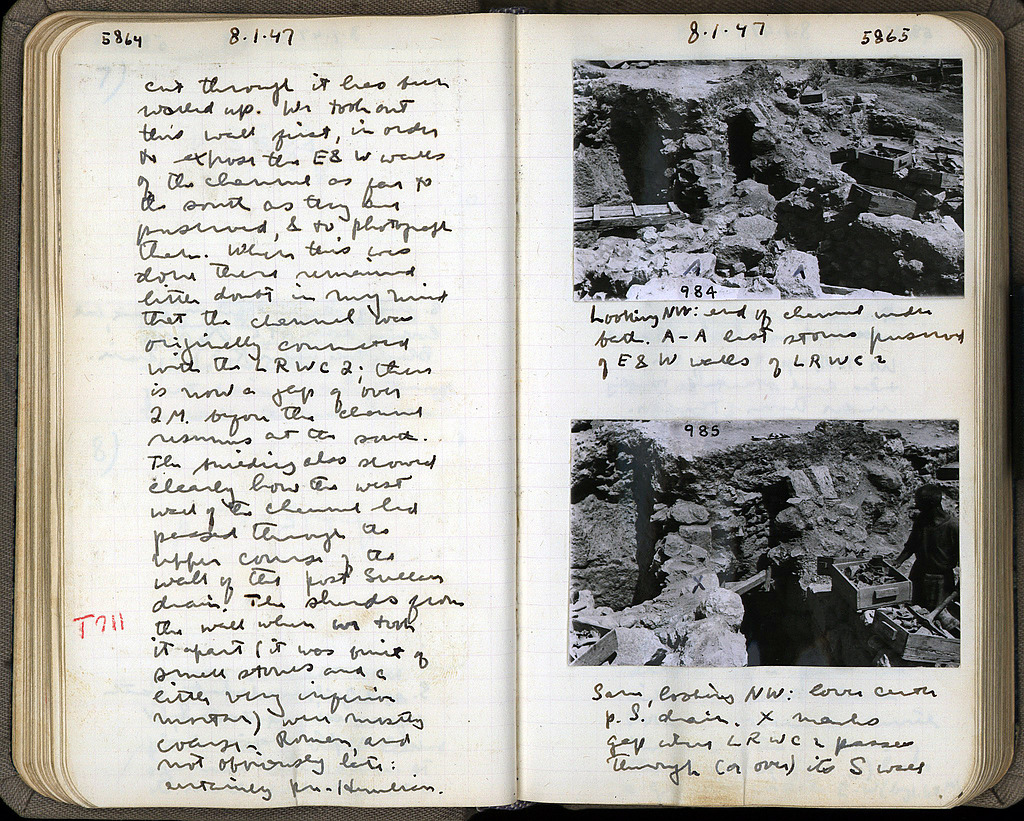 5864
8·1·47
cut through it has been
worked up. We took out
this wall first, in order
to expose the E & W walls
of the channel as far to
the south as they are
preserved, & to photograph
them. When this was
done there remained
little doubt in my mind
that the channel was
originally connected
with the LRWC 2; there
is now a gap of over
2 M. before the channel
resumes at the south.
The building also showed
clearly how the west
wall of the channel had
passed through the
upper course of the
wall of the post Sullan
drain. The sherds from
T711
the wall when we took
it apart (it was built of
small stones and a
little very inferior
mortar) were mostly
coarse Roman, and
not obviously late:
certainly pre-Herulian.
8·1·47
5865
984
Looking NW: end of channel under
bath. A-A last stones preserved
of E & W walls of LRWC 2
985
X
Same, looking NW: lower center
p. S. drain. X marks
gap where LRWC 2 passes
through (or over) its S wall